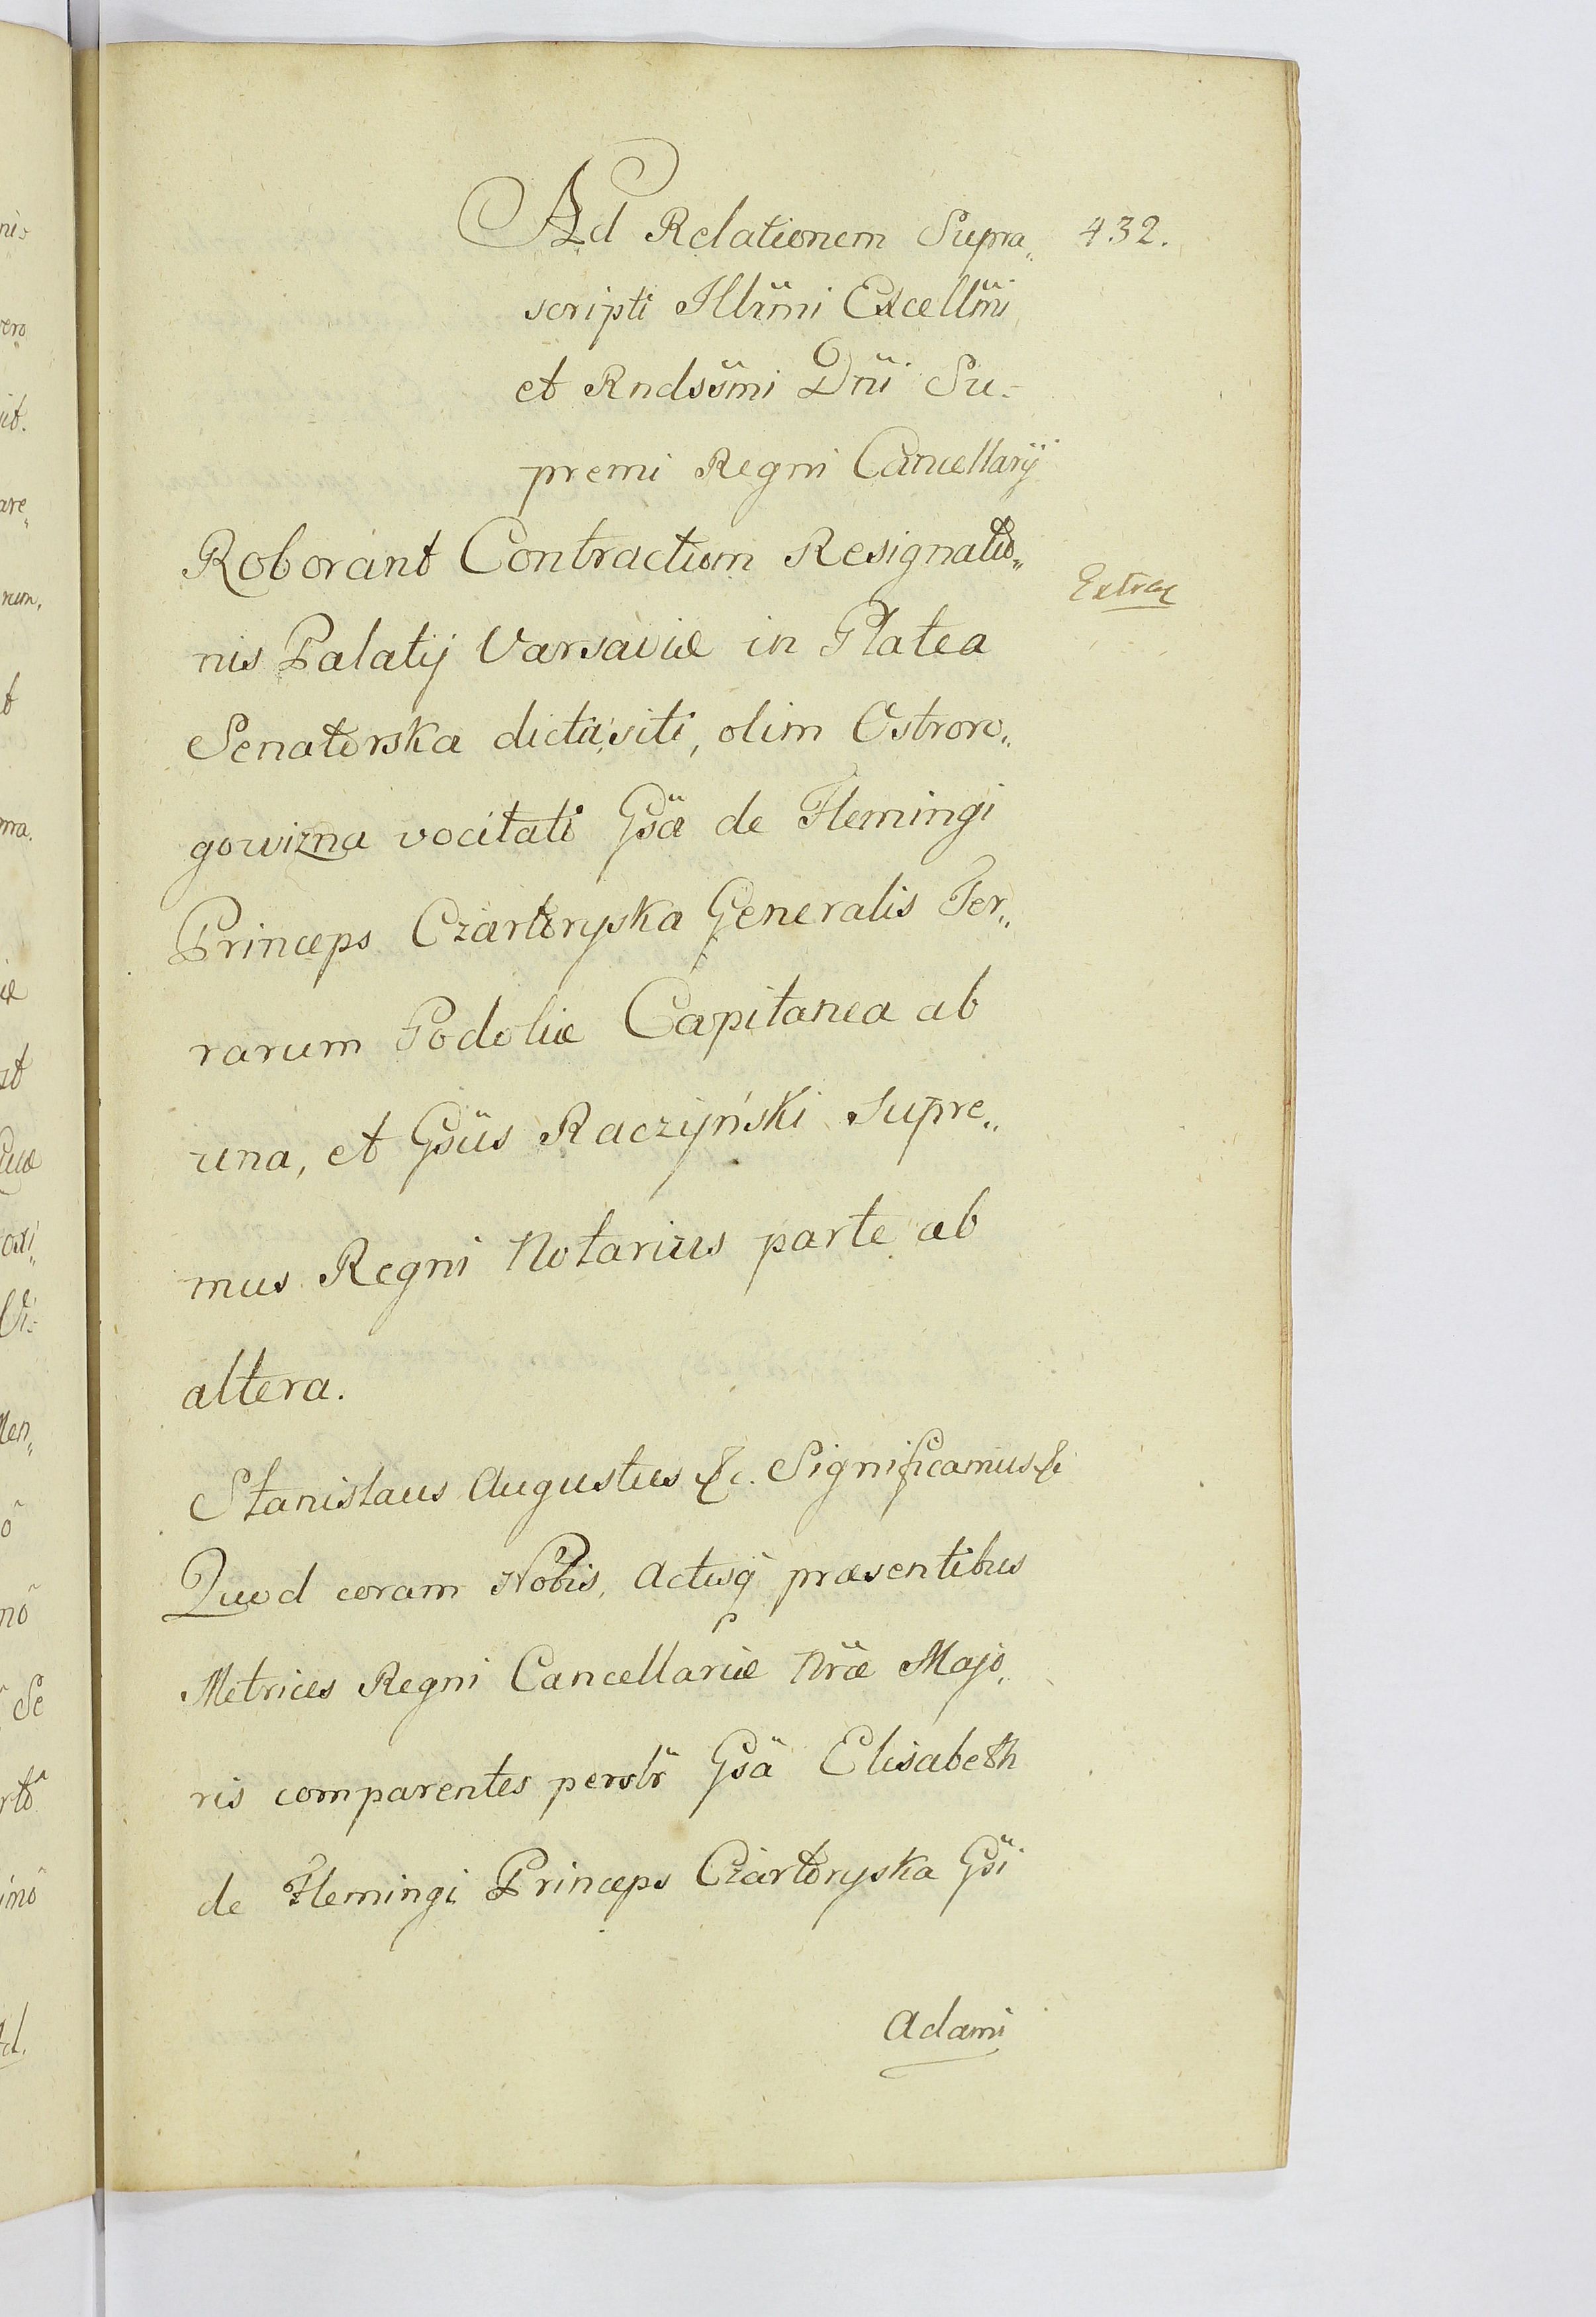 Ad Relationem Supra„ 432.
scripti Illr̃mi Excellm̃i
et Rndss̃mi Dñi Su-
premi Regni Cancellarij
Roborant Contractum Resignatio„
Extrac
nis Palatij Varsaviæ in Platea
Senatorska dicta, siti, olim Ostroro„
gowizna vocitati Gsã de Flemingi
Princeps Czartoryska Generalis Ter„
rarum Podoliæ Capitanea ab
una, et Gsũs Raczyński Supre„
mus Regni Notarius parte ab
altera.
Stanislaus Augustus &c. Significamus &c
Quod coram Nobis, Actisq̃ præsentibus
Metrices Regni Cancellariæ Nrã̃e Majo„
ris comparentes persłr̃ Gsã Elisabeth
de Flemingi Princeps Czartoryska Gsĩ
Adami